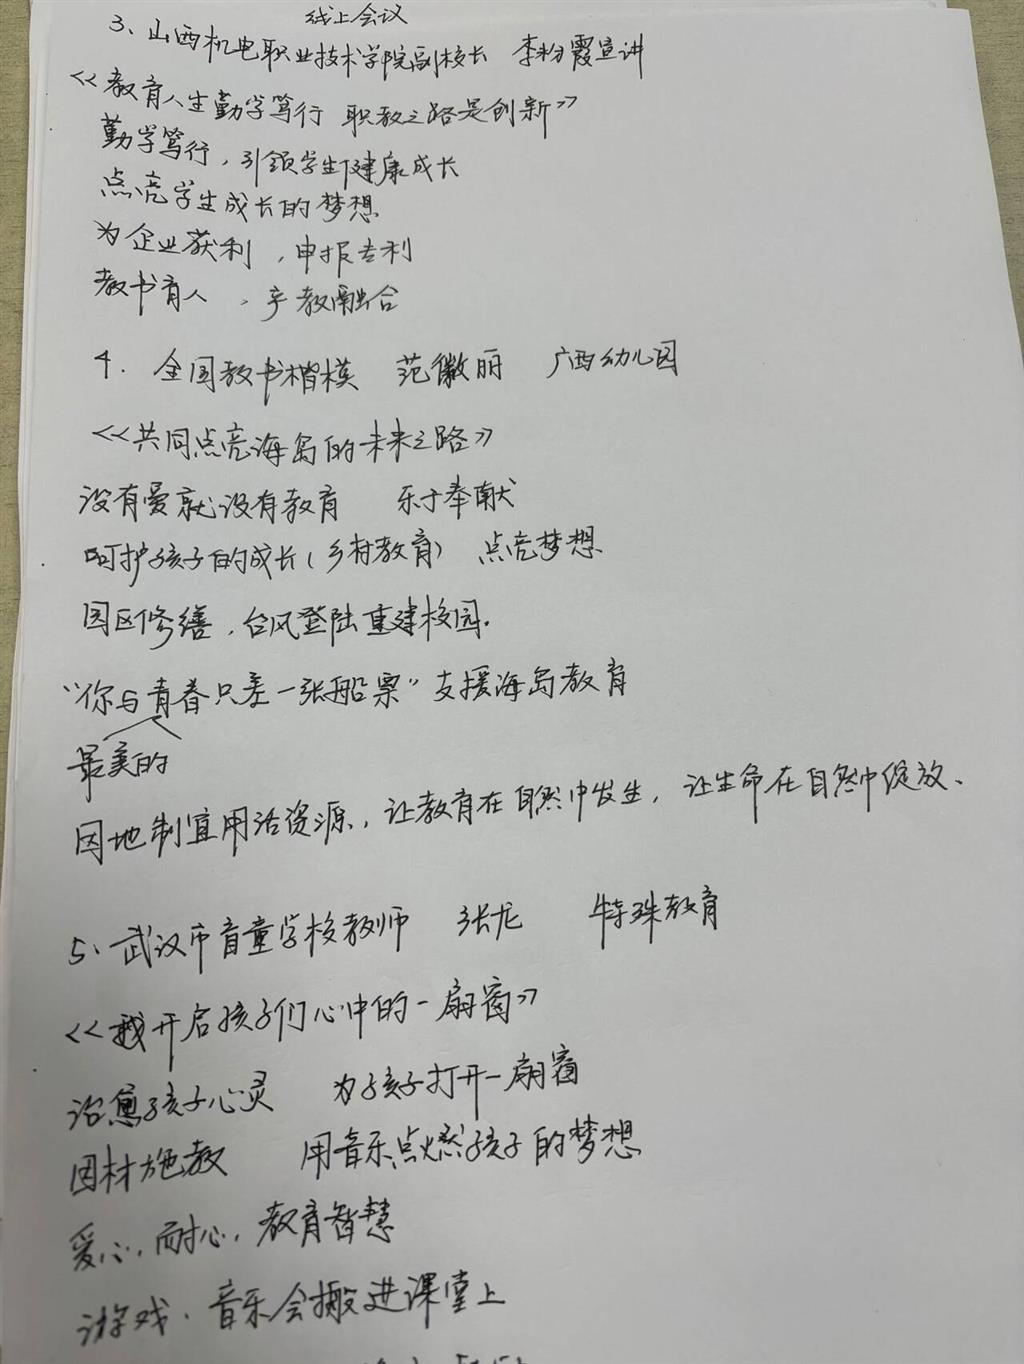 线上会议
3、山西机电职业技术学院副校长 李粉霞宣讲
<<教育人生勤学笃行 职教之路是创新>>
勤学笃行，引领学生健康成长
点亮学生成长的梦想
为企业获利，申报专利
教书育人，产教融合
4. 全国教书楷模 范徽丽 广西幼儿园
<<共同点亮海岛的未来之路>>
没有爱就没有教育 乐于奉献
呵护孩子的成长(乡村教育) 点亮梦想
园区修缮，台风登陆重建校园.
"你与青春只差一张船票"支援海岛教育
最美的
因地制宜用活资源，让教育在自然中发生，让生命在自然中绽放、
5、武汉市盲童学校教师 张龙 特殊教育
<<我开启孩子们心中的一扇窗>>
治愈孩子心灵 为孩子打开一扇窗
因材施教 用音乐点燃孩子的梦想
爱心，耐心，教育智慧
游戏、音乐会搬进课堂上